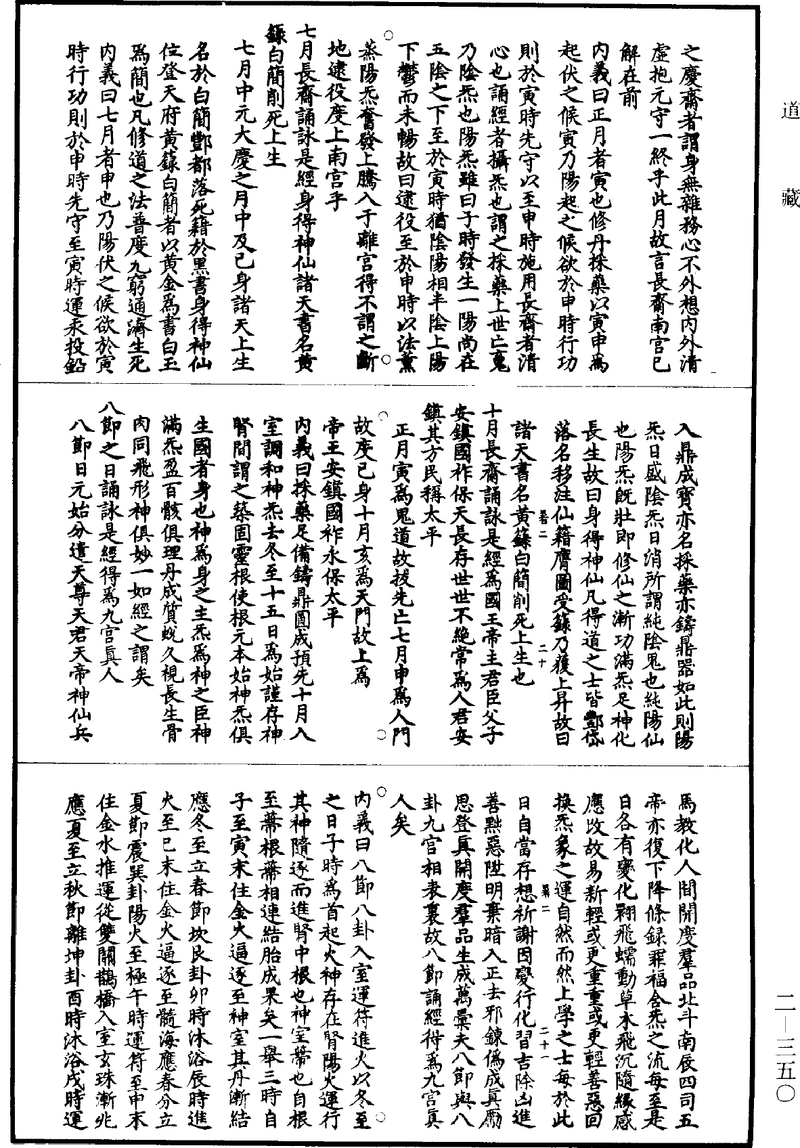 道藏
之慶齋者謂身無雜務心不外想內外清
虛抱元守一終乎此月故言長齋南宮已
解在前
內義曰正月者寅也修丹採藥以寅申為
起伏之候寅乃陽起之候欲於申時行功
則於寅時先守以至申時施用長齋者清
心也誦經者攝炁也謂之採藥上世亡䰟
乃陰炁也陽炁雖曰子時發生一陽尚在
五陰之下至於寅時猶陰陽相半陰上陽
下鬱而未暢故曰逮役至於申時以法薰
蒸陽炁奮發上騰入于離宮得不謂之斷
地逮役度上南宮乎
七月長齋誦詠是經身得神仙諸天書名黃
籙白簡削死上生
七月中元大慶之月中及己身諸天上生
名於白簡酆都落死籍於黑書身得神仙
位登天府黃籙白簡者以黃金為書白玉
為簡也凡修道之法普度九窮通濟生死
內義曰七月者申也乃陽伏之候欲於寅
時行功則於申時先守至寅時運汞投鉛
入鼎成寶亦名採藥亦鑄鼎器如此則陽
炁日盛陰炁日消所謂純陰鬼也純陽仙
也陽炁旣壯即修仙之漸功滿炁足神化
長生故曰身得神仙凡得道之士皆酆岱
落名移注仙籍膺圖受籙乃獲上昇故曰
諸天書名黃籙白簡削死上生也
十月長齋誦詠是經為國王帝主君臣父子
安鎮國祚保天長存世世不絕常為人君安
鎮其方民稱太平
正月寅為鬼道故拔先亡七月申為人門
故度己身十月亥為天門故上為
帝王安鎮國祚永保太平
內義曰採藥足備鑄鼎圓成預先十月入
室調和神炁去冬至十五日為始謹存神
腎間謂之築固靈根使根元本始神炁俱
生國者身也神為身之主炁為神之臣神
滿炁盈百骸俱理丹成質蛻久視長生骨
肉同飛形神俱妙一如經之謂矣
八節之日誦詠是經得為九宮眞人
八節日元始分遣天尊天君天帝神仙兵
馬教化人間開度羣品北斗南辰四司五
帝亦復下降條録罪福含炁之流每至是
日各有變化翾飛蠕動草木飛沉隨緣感
應攺故易新輕或更重重或更輕善惡回
換炁象之運自然而然上學之士每於此
日自當存想祈謝因變行化習吉除凶進
善黜惡陞明棄暗入正去邪鍊僞成真勵
思登真開度羣品生成萬彙夫八節與八
卦九宮相表裏故八節誦經得為九宮眞
人矣
內義曰八節八卦入室運符進火以冬至
之日子時為首起火神存在腎陽火運行
其神隨逐而進腎中根也神室蔕也自根
至蔕根蔕相連結胎成果矣一舉三時自
子至寅末住金火逼逐至神室其丹漸結
應冬至立春節坎艮卦卯時沐浴辰時進
火至巳末住金火逼逐至髓海應春分立
夏節震巽卦陽火至極午時運符至申末
住金水推運從雙關鵲橋入室玄珠漸兆
應夏至立秋節離坤卦酉時沐浴戌時運
卷二
二十
卷二
二十一
二—三五〇